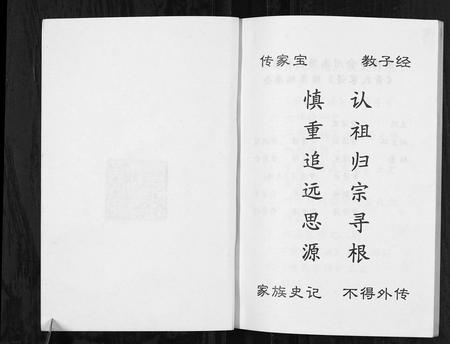 传家宝 教子经
认祖归宗寻根
慎重追远思源
家族史记 不得外传